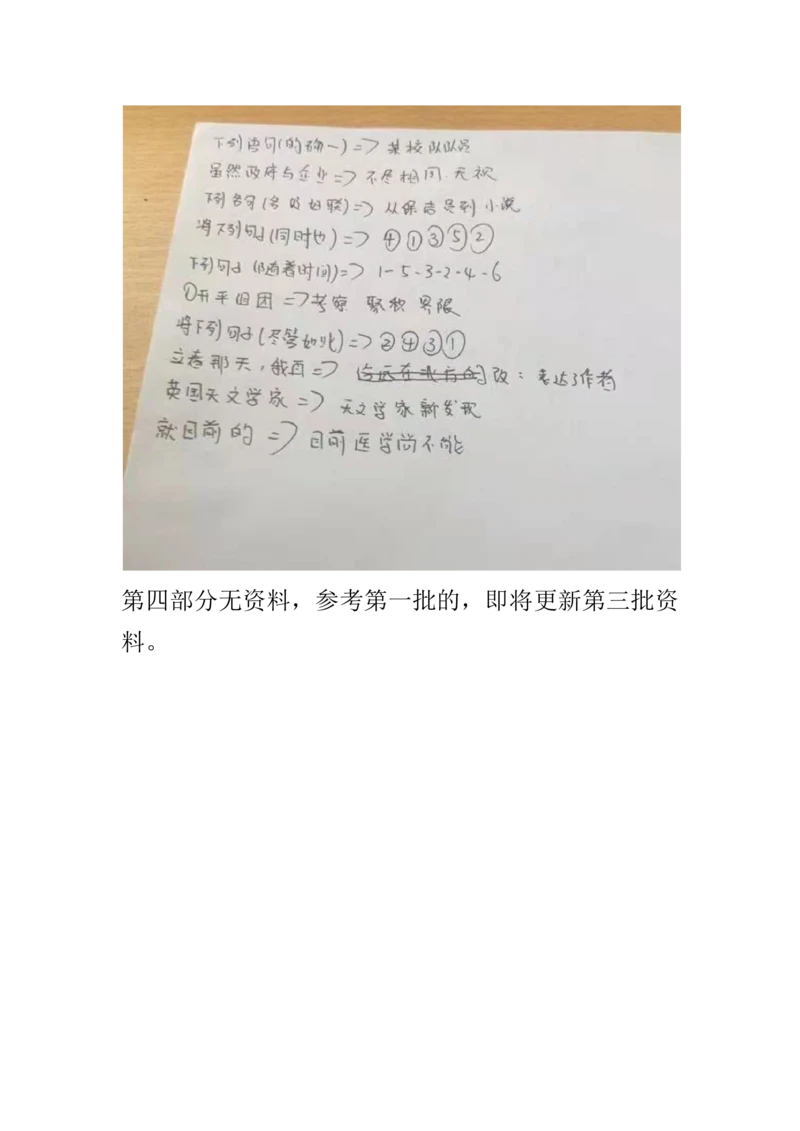 下列语句(的确一)=>某校队队员
虽然政府与企业=>不尽相同 无视
下列各句(各妇联)=>从保洁员到小说
将下列句(同时也)=>④①③⑤②
下列句子(随着时间)=>1-5-3-2-4-6
①开平田团=>考察 聚积 界限
将下列句子(尽管如此)=>②④③①
立春那天,我=>改:表达了作者
英国天文学家=>天文学家新发现
就目前的=>目前医学尚不能
第四部分无资料，参考第一批的，即将更新第三批资
料。